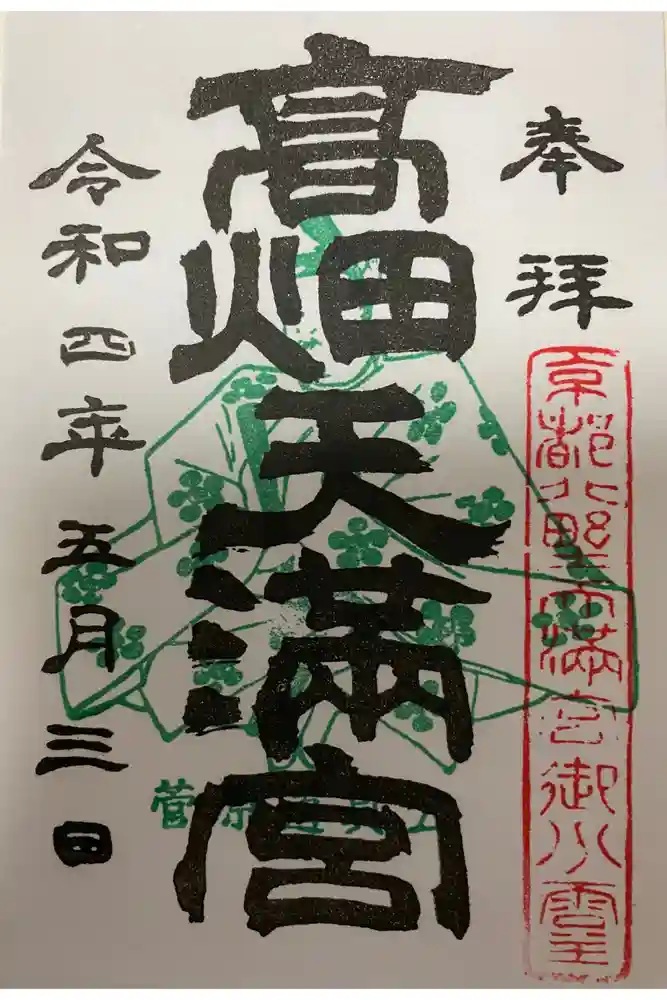 奉拝
京都北野天満宮御分霊
高畑天満宮
菅原道真公
令和四年五月三日